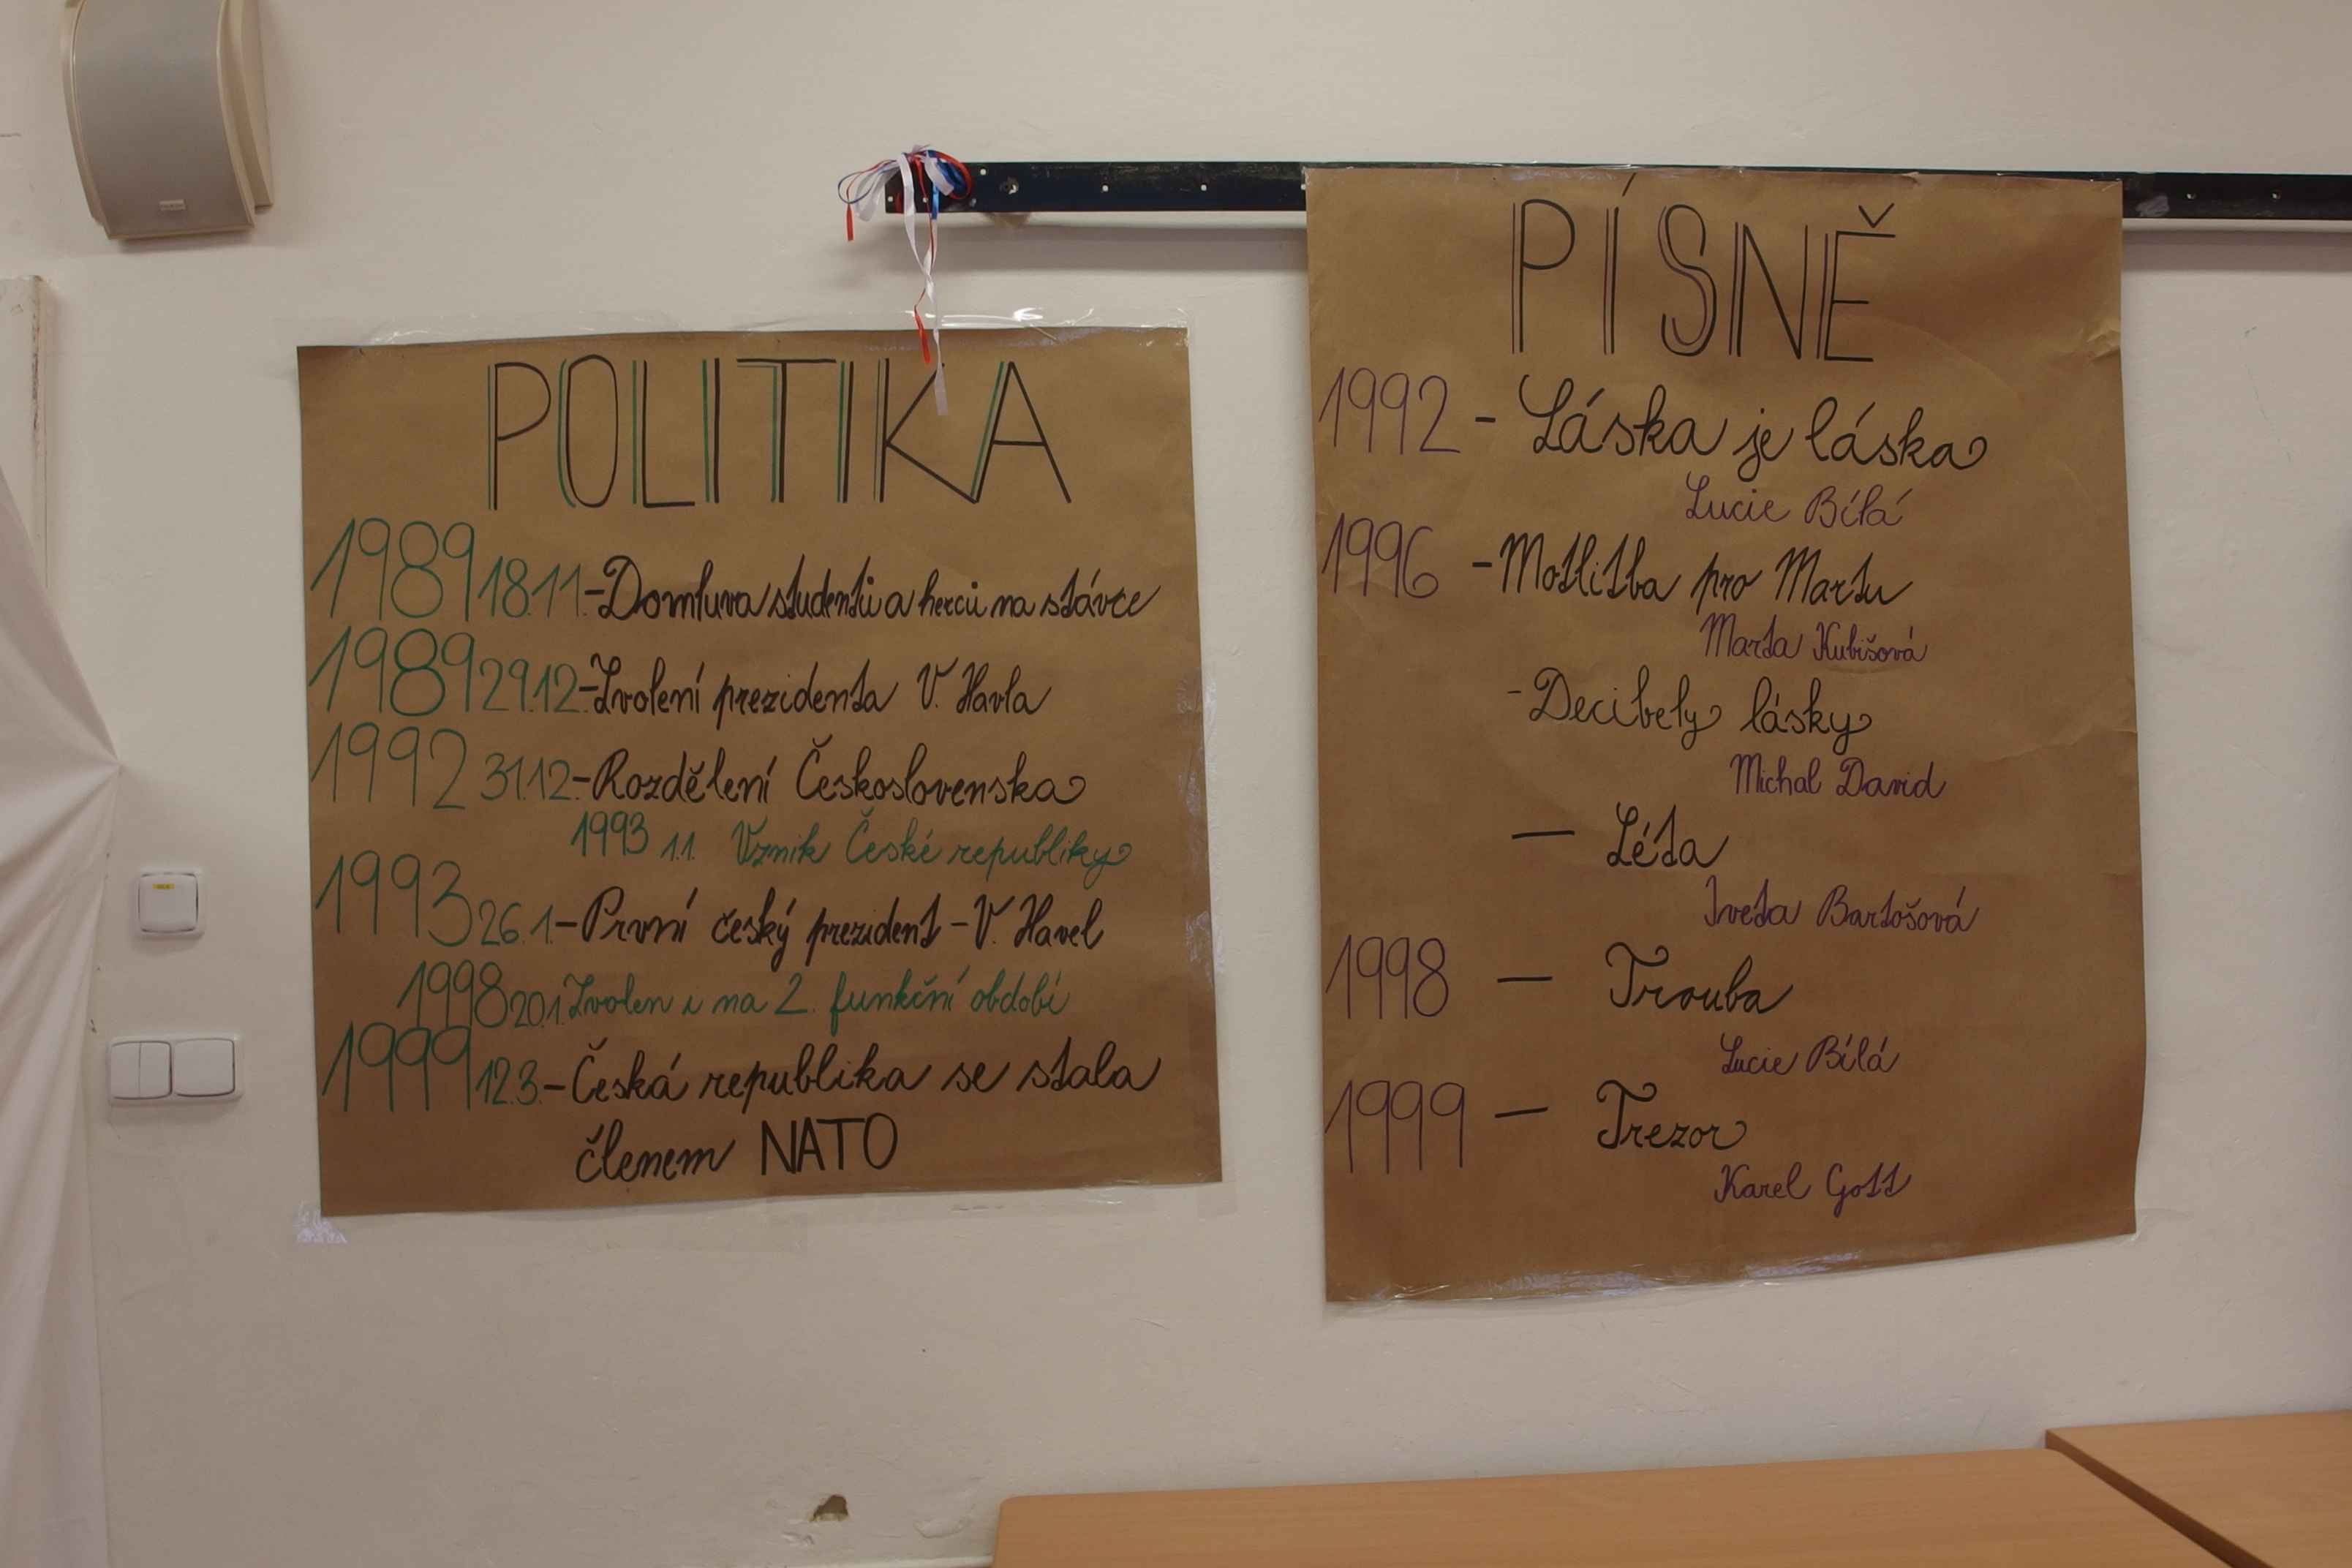 POLITIKA
1989 18.11.-Domluva studentů a herců na stávce
1989 29.12.-Zvolení prezidenta V. Havla
1992 31.12.-Rozdělení Československa
1993 1.1. Vznik České republiky
1993 26.1.-První český prezident-V. Havel
1998 20.1. Zvolen i na 2. funkční období
1999 12.3.-Česká republika se stala
členem NATO
PÍSNĚ
1992 - Láska je láska
Lucie Bílá
1996 -Motlitba pro Martu
Marta Kubišová
-Decibely lásky
Michal David
- Léta
Iveta Bartošová
1998 - Trouba
Lucie Bílá
1999 - Trezor
Karel Gott